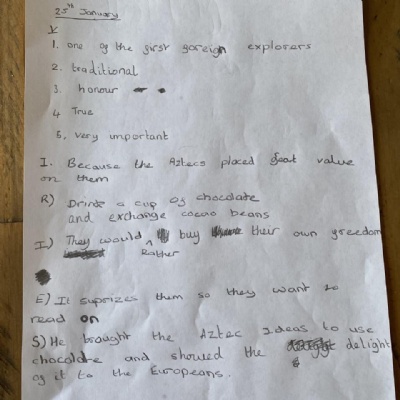 25th January
V
1. one of the first foreign explorers
2. traditional
3. honour
4 True
5. very important
I. Because the Aztecs placed great value
on them
R) Drink a cup of chocolate
and exchange cocao beans
I) They would buy their own freedom
Rather
E) It suprizes them so they want to
read on
S) He brought the Aztec Ideas to use
chocolate and showed the delight
of it to the Europeans.